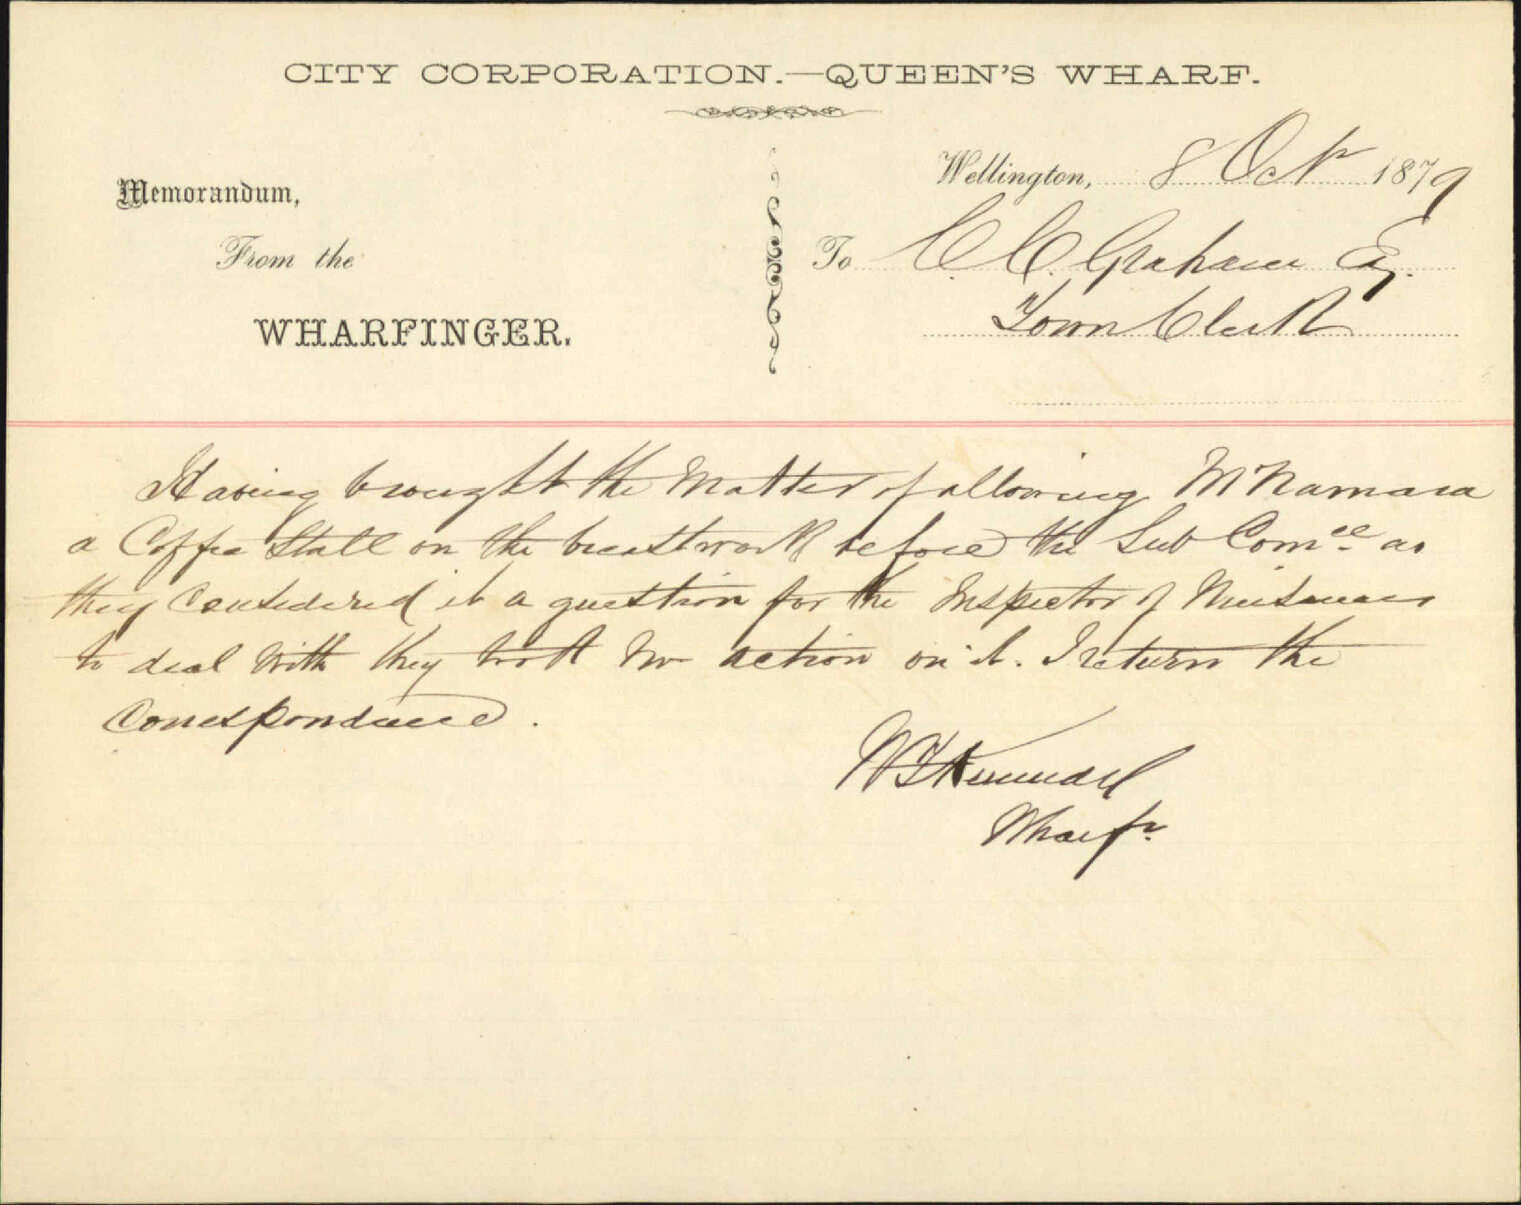 CITY CORPORATION.—QUEEN'S WHARF.
Memorandum,
From the
WHARFINGER.
Wellington, 8 Octr 1879
To C. C. Graham Esq.
Town Clerk
Having brought the Matter of allowing McNamara
a Coffee Stall on the breastwork before the Sub Comee as
they Considered it a question for the Inspector of Nuisances
to deal with they took no action on it. I return the
Correspondence.
Wharfr